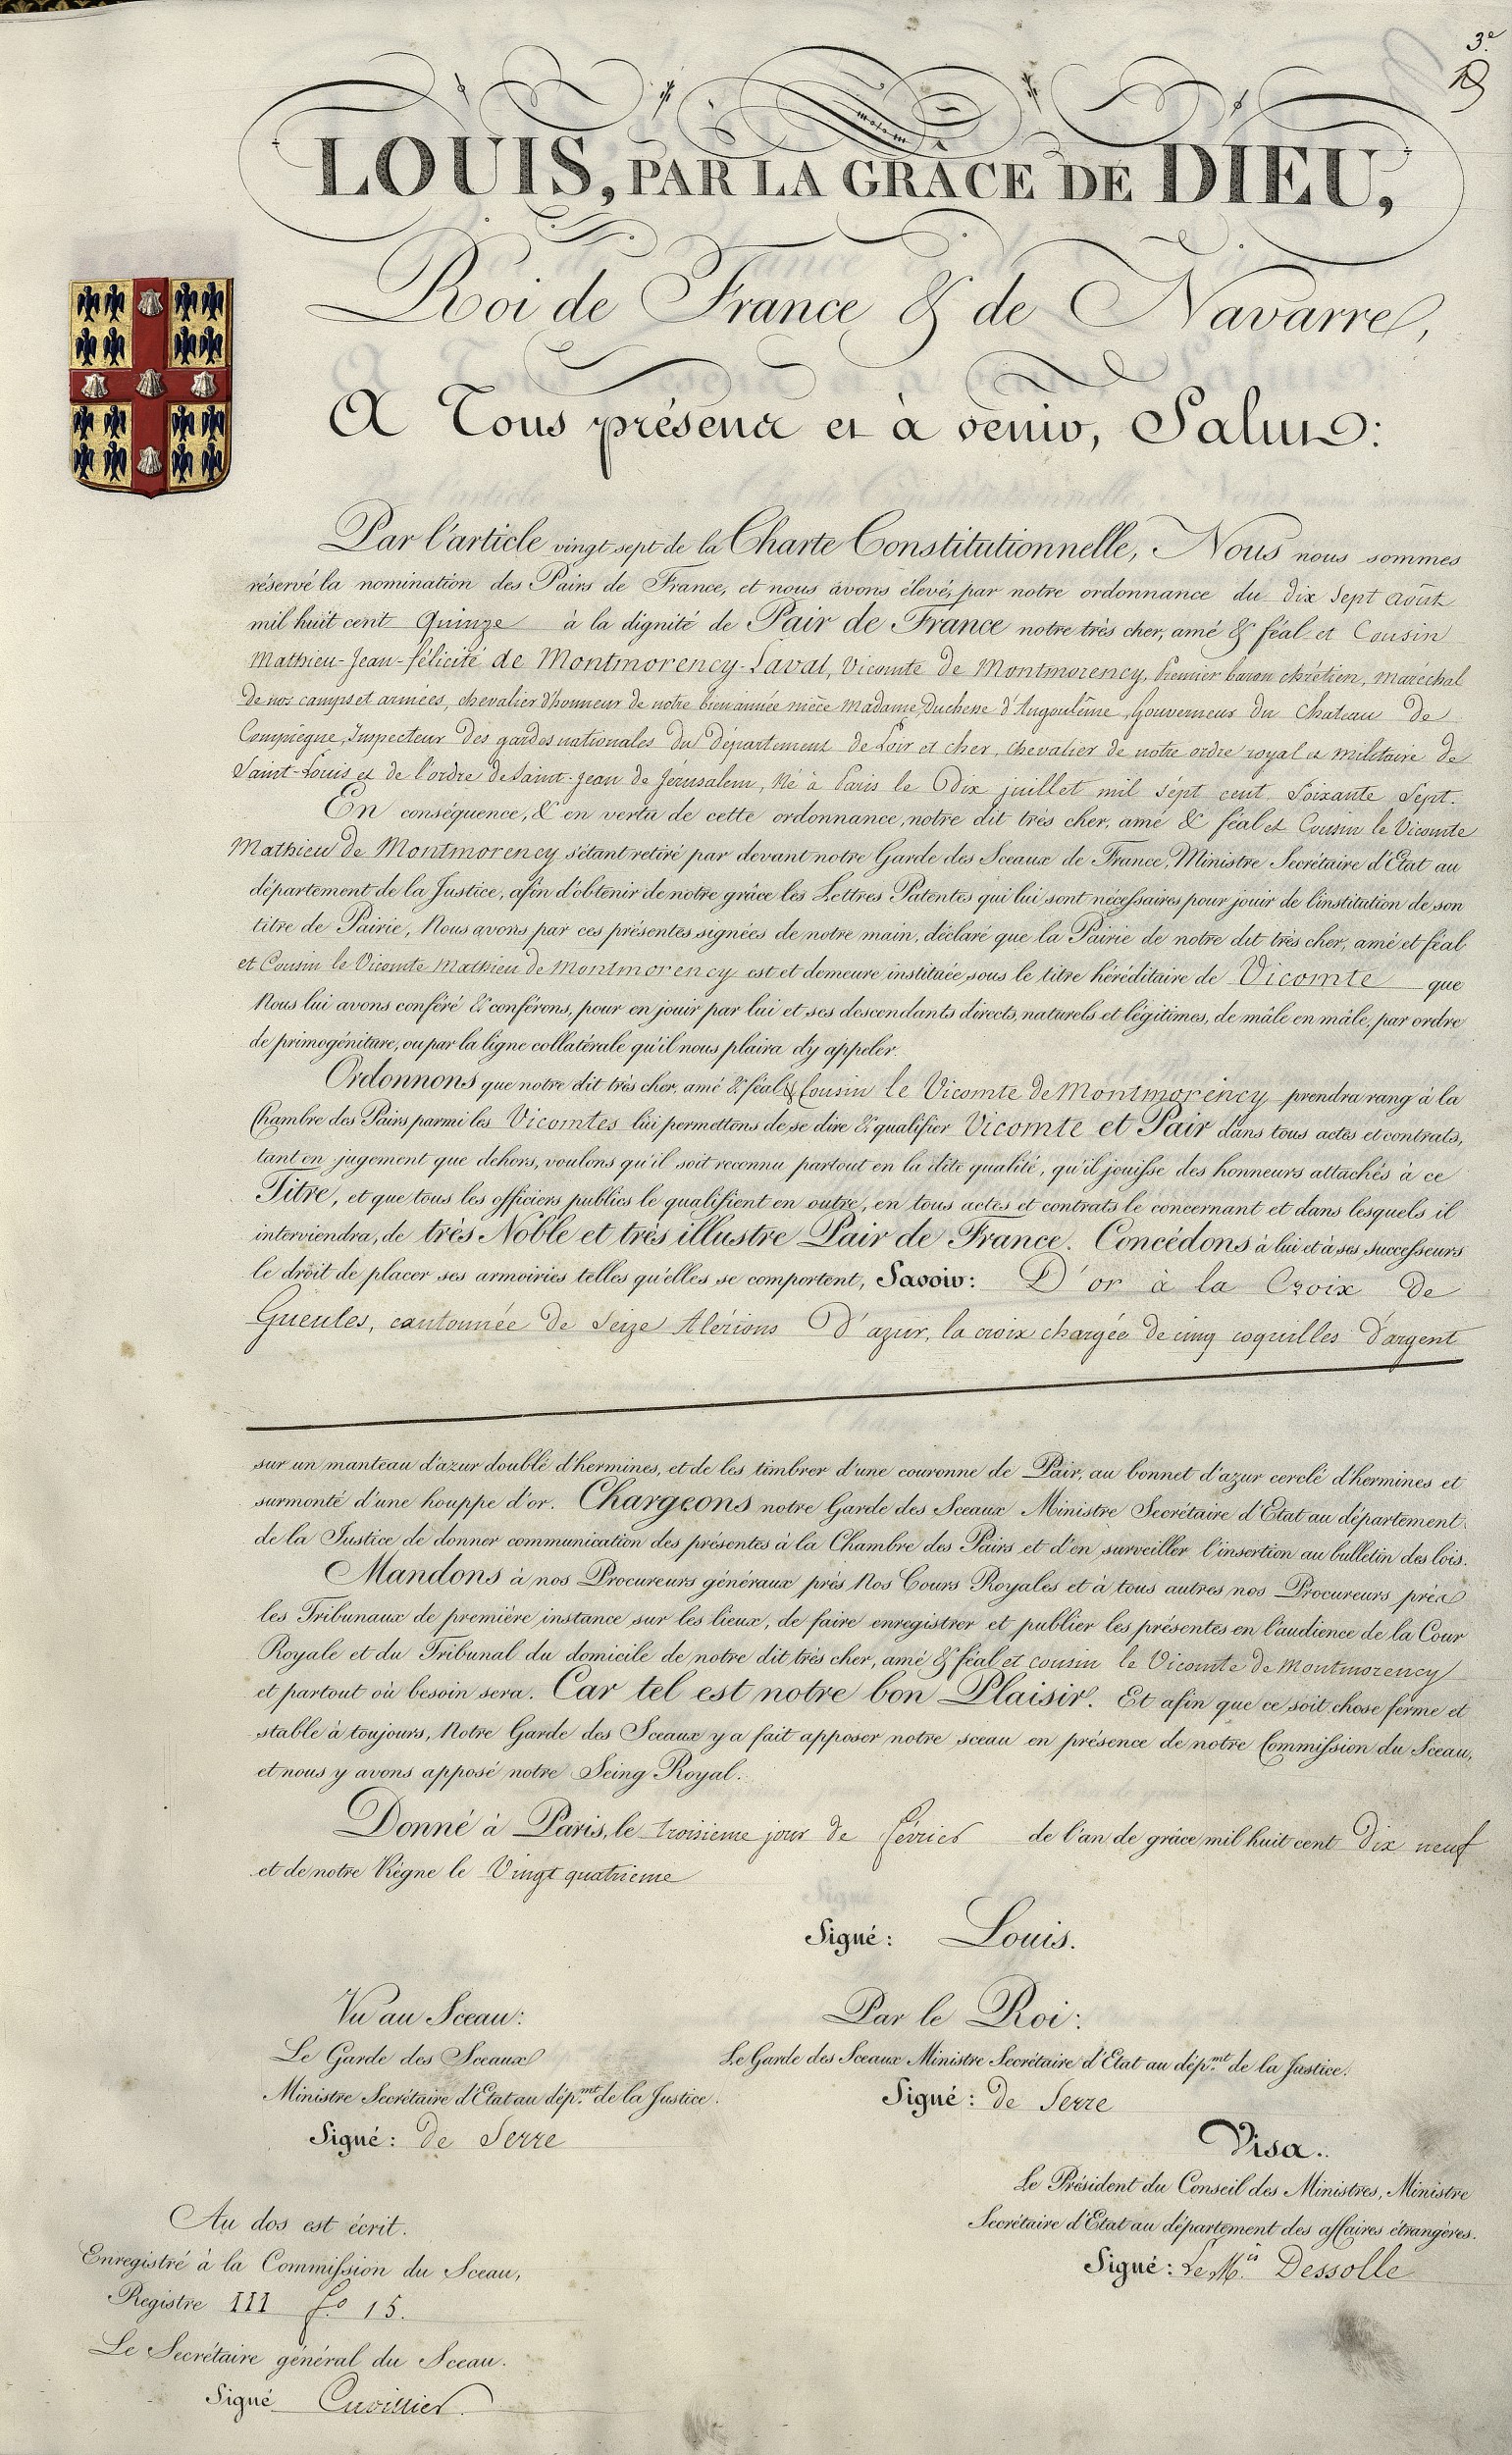 3.e
LOUIS, PAR LA GRÂCE DE DIEU,
Roi de France & de Navarre,
A Tous présens et à venir, Salut:
Par l'article vingt sept de la Charte Constitutionnelle, Nous nous sommes
réservé la nomination des Pairs de France, et nous avons élevé, par notre ordonnance du dix Sept août
mil huit cent Quinze à la dignité de Pair de France notre très cher, amé & féal et Cousin
Mathieu-Jean-félicité de Montmorency-Laval, Vicomte de Montmorency, Premier baron chrétien, Maréchal
de nos camps et armées, chevalier d'honneur de notre bien aimée nièce Madame, Duchesse d'Angoulême, Gouverneur du Chateau de
Compiègne, Inspecteur des gardes nationales du département de Loir et cher, chevalier de notre ordre royal et militaire de
Saint-Louis et de l'ordre de Saint-Jean de Jérusalem, Né à Paris le Dix juillet mil sept cent Soixante Sept.
En conséquence, & en vertu de cette ordonnance, notre dit très cher, amé & féal et Cousin le Vicomte
Mathieu de Montmorency s'étant retiré par devant notre Garde des Sceaux de France, Ministre Secrétaire d'Etat au
département de la Justice, afin d'obtenir de notre grâce les Lettres Patentes qui lui sont nécessaires pour jouir de l'institution de son
titre de Pairie, Nous avons par ces présentes signées de notre main, déclaré que la Pairie de notre dit très cher, amé et féal
et Cousin le Vicomte Mathieu de Montmorency est et demeure instituée sous le titre héréditaire de Vicomte que
Nous lui avons conféré & conférons, pour en jouir par lui et ses descendants directs, naturels et légitimes, de mâle en mâle, par ordre
de primogéniture, ou par la ligne collatérale qu'il nous plaira d'y appeler.
Ordonnons que notre dit très cher, amé & féal & Cousin le Vicomte de Montmorency prendra rang à la
Chambre des Pairs parmi les Vicomtes lui permettons de se dire & qualifier Vicomte et Pair dans tous actes et contrats,
tant en jugement que dehors, voulons qu'il soit reconnu partout en la dite qualité, qu'il jouisse des honneurs attachés à ce
Titre, et que tous les officiers publics le qualifient en outre, en tous actes et contrats le concernant et dans lesquels il
interviendra, de très Noble et très illustre Pair de France. Concédons à lui et à ses successeurs
le droit de placer ses armoiries telles qu'elles se comportent, Savoir: D'or à la Croix de
Gueules, cantonnée de Seize Alérions D'azur, la croix chargée de cinq coquilles d'argent
sur un manteau d'azur doublé d'hermines, et de les timbrer d'une couronne de Pair, au bonnet d'azur cerclé d'hermines et
surmonté d'une houppe d'or. Chargeons notre Garde des Sceaux Ministre Secrétaire d'Etat au département
de la Justice de donner communication des présentes à la Chambre des Pairs et d'en surveiller l'insertion au bulletin des lois.
Mandons à nos Procureurs généraux près Nos Cours Royales et à tous autres nos Procureurs près
les Tribunaux de première instance sur les lieux, de faire enregistrer et publier les présentes en l'audience de la Cour
Royale et du Tribunal du domicile de notre dit très cher, amé & féal et cousin le Vicomte de Montmorency
et partout où besoin sera. Car tel est notre bon Plaisir. Et afin que ce soit chose ferme et
stable à toujours, Notre Garde des Sceaux y a fait apposer notre sceau en présence de notre Commission du Sceau,
et nous y avons apposé notre Seing Royal.
Donné à Paris, le troisieme jour de février de l'an de grâce mil huit cent Dix neuf
et de notre Règne le Vingt quatrieme
Signé: Louis.
Vu au Sceau:
Le Garde des Sceaux
Ministre Secrétaire d'Etat au dép.mt de la Justice.
Signé: de Serre
Par le Roi:
Le Garde des Sceaux Ministre Secrétaire d'Etat au dép.mt de la Justice.
Signé: de Serre
Visa.
Le Président du Conseil des Ministres, Ministre
Secrétaire d'Etat au département des affaires étrangères.
Signé: Le M.is Dessolle
Au dos est écrit.
Enregistré à la Commission du Sceau,
Registre III f.o 15.
Le Secrétaire général du Sceau.
Signé Cuvillier